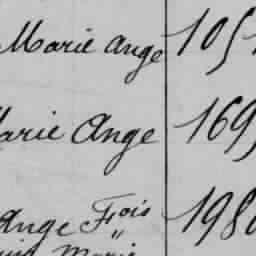 Marie Ange 105
Marie Ange 169
Ange Fois 198
Marie